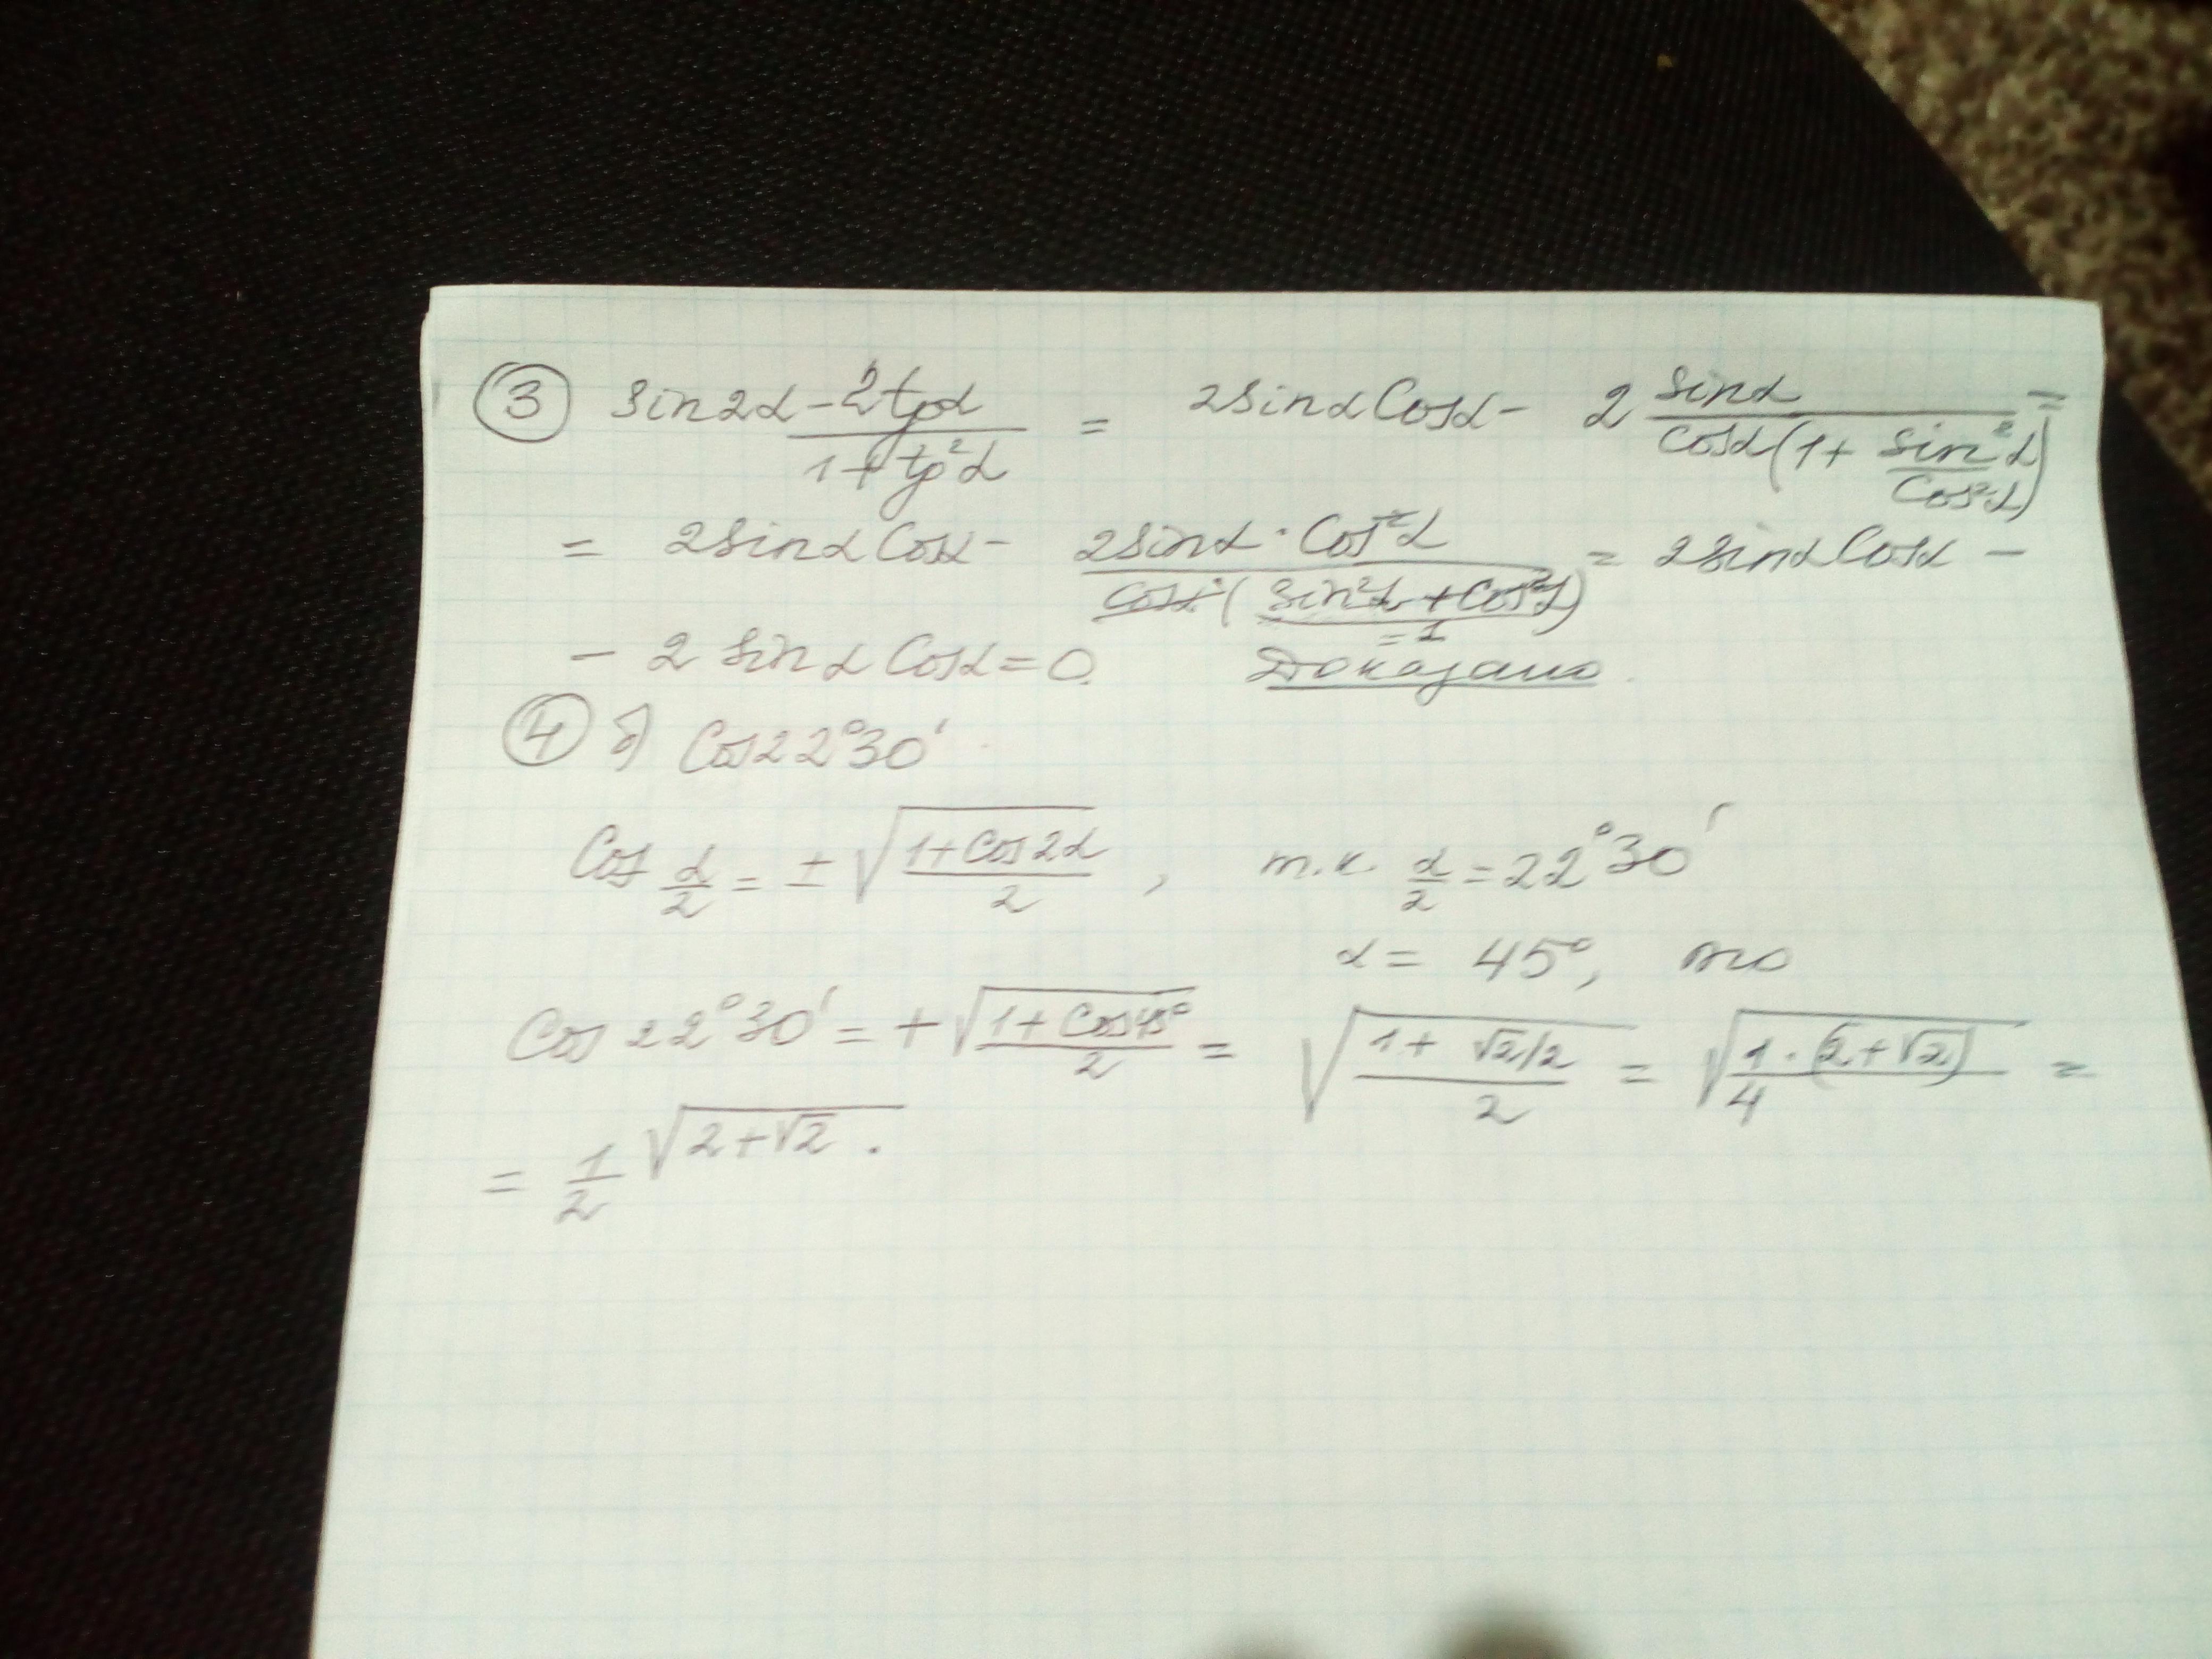 ③ sin2α - 2tgα / 1+tg²α = 2sinαCosα - 2 sinα / cosα(1+ sin²α / Cos²α) =
= 2sinαCosα - 2sinα·Cos²α / cosα(sin²α+Cos²α) = 2sinαCosα -
=1
- 2 sinαCosα = 0. Доказано.
④ б) Cos22°30'
Cos α/2 = ± √(1+Cos2α / 2), т.к. α/2 = 22°30'
α = 45°, то
Cos22°30' = +√(1+Cos45° / 2) = √(1+√2/2 / 2) = √(1·(2+√2) / 4) =
= 1/2 √(2+√2).